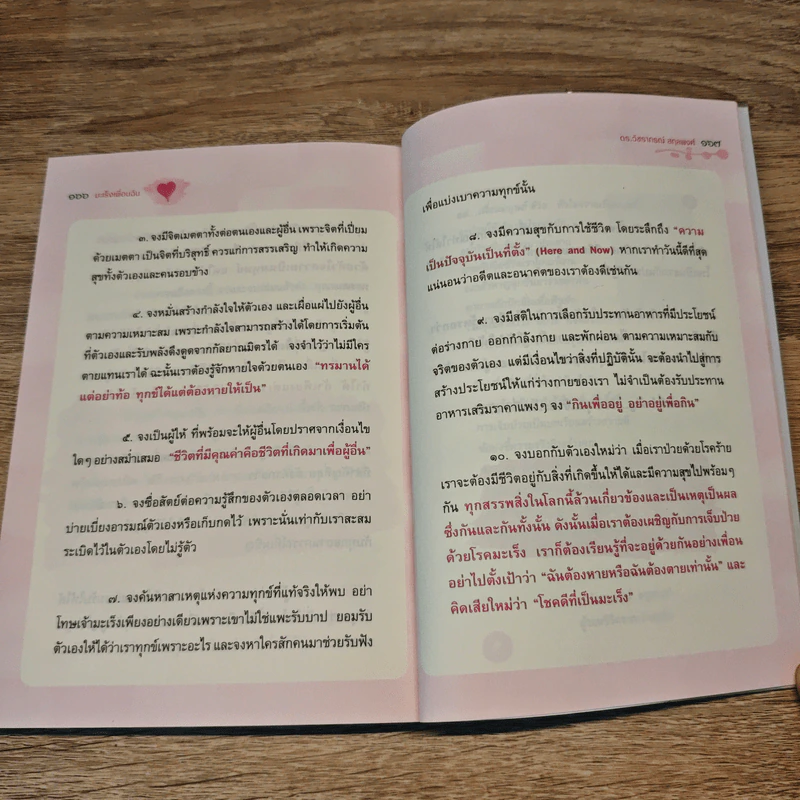 ๑๖๖ มะเร็งเพื่อนฉัน
๓. จงมีจิตเมตตาทั้งต่อตนเองและผู้อื่น เพราะจิตที่เปี่ยม
ด้วยเมตตา เป็นจิตที่บริสุทธิ์ ควรแก่การสรรเสริญ ทำให้เกิดความ
สุขทั้งตัวเองและคนรอบข้าง
๔. จงหมั่นสร้างกำลังใจให้ตัวเอง และเผื่อแผ่ไปยังผู้อื่น
ตามความเหมาะสม เพราะกำลังใจสามารถสร้างได้โดยการเริ่มต้น
ที่ตัวเองและรับพลังดึงดูดจากกัลยาณมิตรได้ จงจำไว้ว่าไม่มีใคร
ตายแทนเราได้ ฉะนั้นเราต้องรู้จักหายใจด้วยตนเอง “ทรมานได้
แต่อย่าท้อ ทุกข์ได้แต่ต้องหายให้เป็น”
๕. จงเป็นผู้ให้ ที่พร้อมจะให้ผู้อื่นโดยปราศจากเงื่อนไข
ใดๆ อย่างสม่ำเสมอ “ชีวิตที่มีคุณค่าคือชีวิตที่เกิดมาเพื่อผู้อื่น”
๖. จงซื่อสัตย์ต่อความรู้สึกของตัวเองตลอดเวลา อย่า
บ่ายเบี่ยงอารมณ์ตัวเองหรือเก็บกดไว้ เพราะนั่นเท่ากับเราสะสม
ระเบิดไว้ในตัวเองโดยไม่รู้ตัว
๗. จงค้นหาสาเหตุแห่งความทุกข์ที่แท้จริงให้พบ อย่า
โทษเจ้ามะเร็งเพียงอย่างเดียวเพราะเขาไม่ใช่แพะรับบาป ยอมรับ
ตัวเองให้ได้ว่าเราทุกข์เพราะอะไร และจงหาใครสักคนมาช่วยรับฟัง
ดร. ๑๖๗
เพื่อแบ่งเบาความทุกข์นั้น
๘. จงมีความสุขกับการใช้ชีวิต โดยระลึกถึง “ความ
เป็นปัจจุบันเป็นที่ตั้ง” (Here and Now) หากเราทำวันนี้ดีที่สุด
แน่นอนว่าอดีตและอนาคตของเราต้องดีเช่นกัน
๙. จงมีสติในการเลือกรับประทานอาหารที่มีประโยชน์
ต่อร่างกาย ออกกำลังกาย และพักผ่อน ตามความเหมาะสมกับ
จริตของตัวเอง แต่มีเงื่อนไขว่าสิ่งที่ปฏิบัตินั้น จะต้องนำไปสู่การ
สร้างประโยชน์ให้แก่ร่างกายของเรา ไม่จำเป็นต้องรับประทาน
อาหารเสริมราคาแพงๆ จง “กินเพื่ออยู่ อย่าอยู่เพื่อกิน”
๑๐. จงบอกกับตัวเองใหม่ว่า เมื่อเราป่วยด้วยโรคร้าย
เราจะต้องมีชีวิตอยู่กับสิ่งที่เกิดขึ้นให้ได้และมีความสุขไปพร้อมๆ
กัน ทุกสรรพสิ่งในโลกนี้ล้วนเกี่ยวข้องและเป็นเหตุเป็นผล
ซึ่งกันและกันทั้งนั้น ดังนั้นเมื่อเราต้องเผชิญกับการเจ็บป่วย
ด้วยโรคมะเร็ง เราก็ต้องเรียนรู้ที่จะอยู่ด้วยกันอย่างเพื่อน
อย่าไปตั้งเป้าว่า “ฉันต้องหายหรือฉันต้องตายเท่านั้น” และ
คิดเสียใหม่ว่า “โชคดีที่เป็นมะเร็ง”